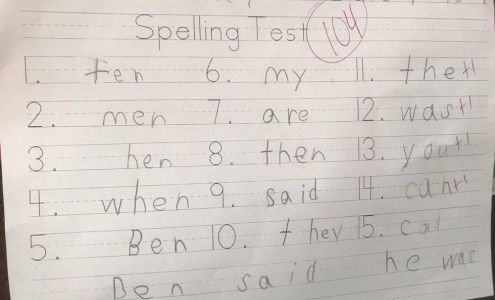 Spelling Test 104
1. ten 6. my 11. the +1
2. men 7. are 12. was +1
3. hen 8. then 13. you +1
4. when 9. said 14. can +1
5. Ben 10. they 15. cat
Ben said he was